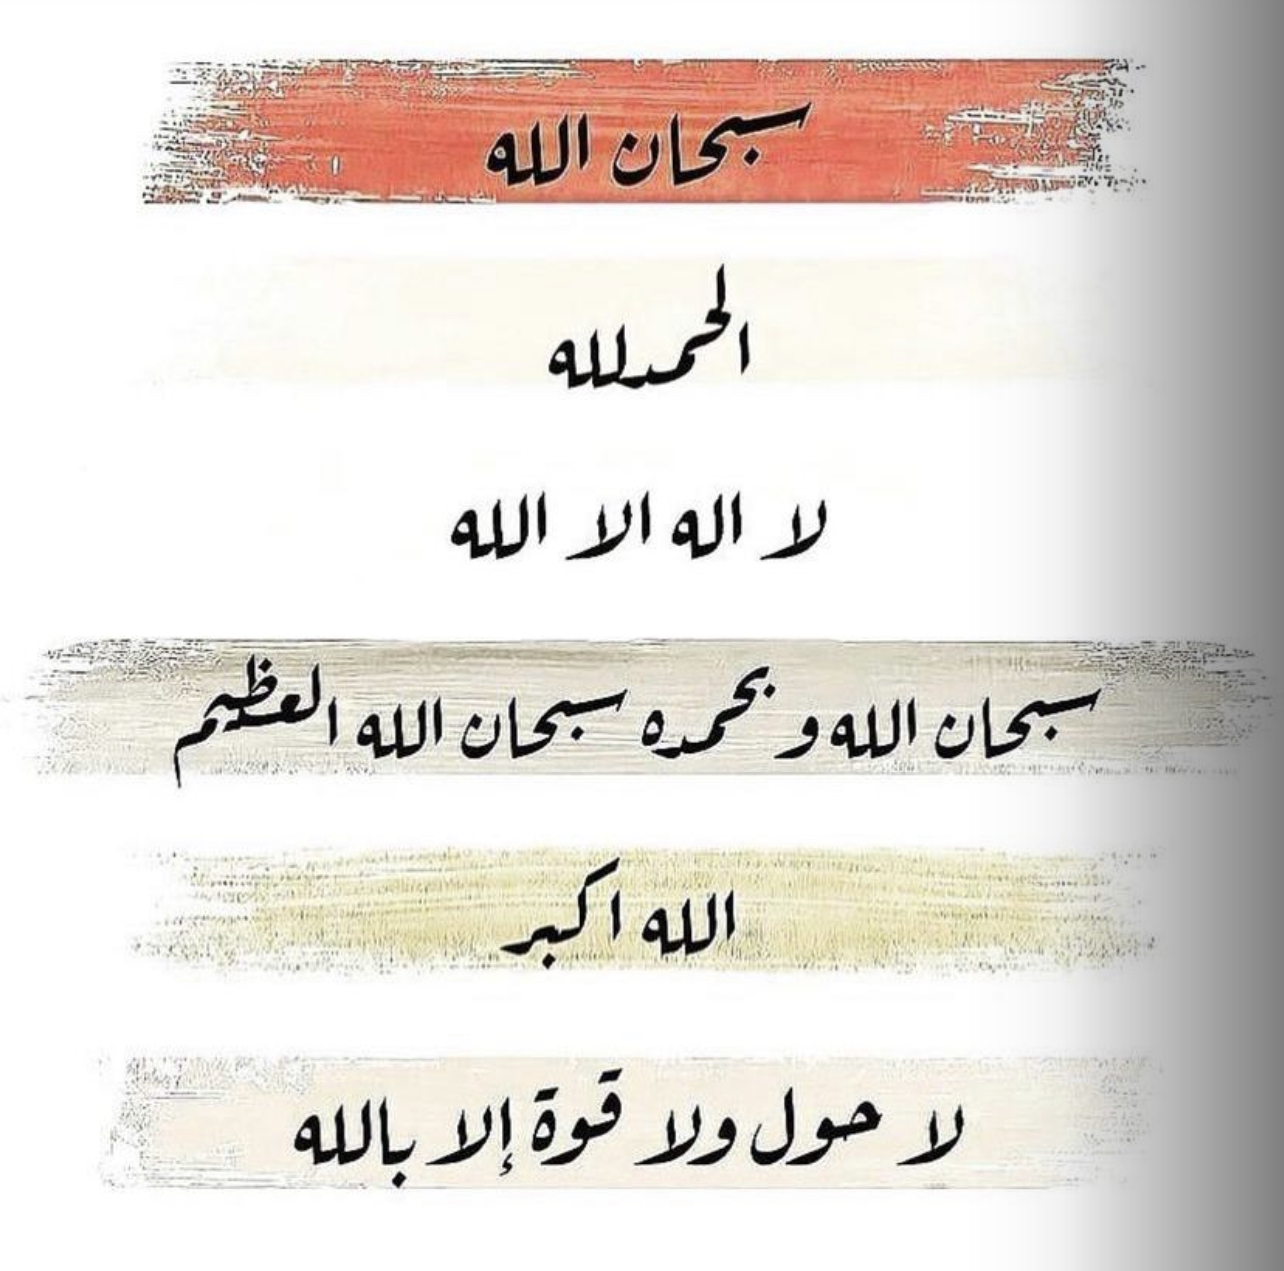 سبحان الله
الحمدلله
لا اله الا الله
سبحان الله و بحمده سبحان الله العظيم
الله اكبر
لا حول ولا قوة إلا بالله